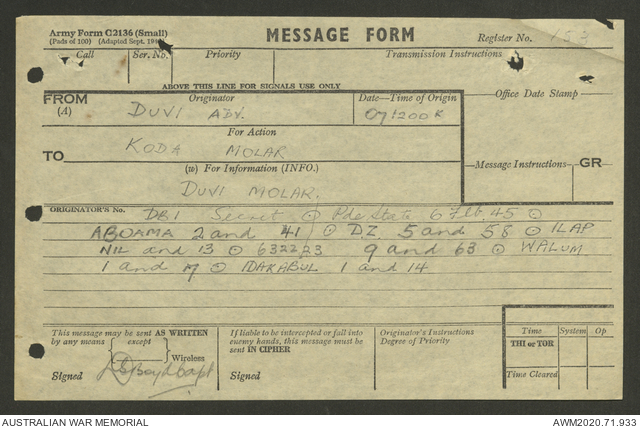 Army Form C2136 (Small)
(Pads of 100) (Adapted Sept.
MESSAGE FORM
Register No. 153
Call Ser. No. Priority Transmission Instructions
ABOVE THIS LINE FOR SIGNALS USE ONLY
FROM
(A)
Originator
DUVI ADV.
Date—Time of Origin
071200K
Office Date Stamp
For Action
TO
KODA MOLAR
(w) For Information (INFO.)
DUVI MOLAR.
Message Instructions GR
ORIGINATOR'S No. DB1 Secret ⊙ Pde State 6 Feb 45 ⊙
ABOAMA 2 and 41 ⊙ DZ. 5 and 58 ⊙ ILAP
NIL and 13 ⊙ 632223 9 and 63 ⊙ WALUM
1 and 7 ⊙ IDAKABUL 1 and 14
This message may be sent AS WRITTEN
by any means except
Wireless
Signed Boyd Capt
If liable to be intercepted or fall into
enemy hands, this message must be
sent IN CIPHER
Signed
Originator's Instructions
Degree of Priority
Time System Op
THI or TOR
Time Cleared
AUSTRALIAN WAR MEMORIAL
AWM2020.71.933